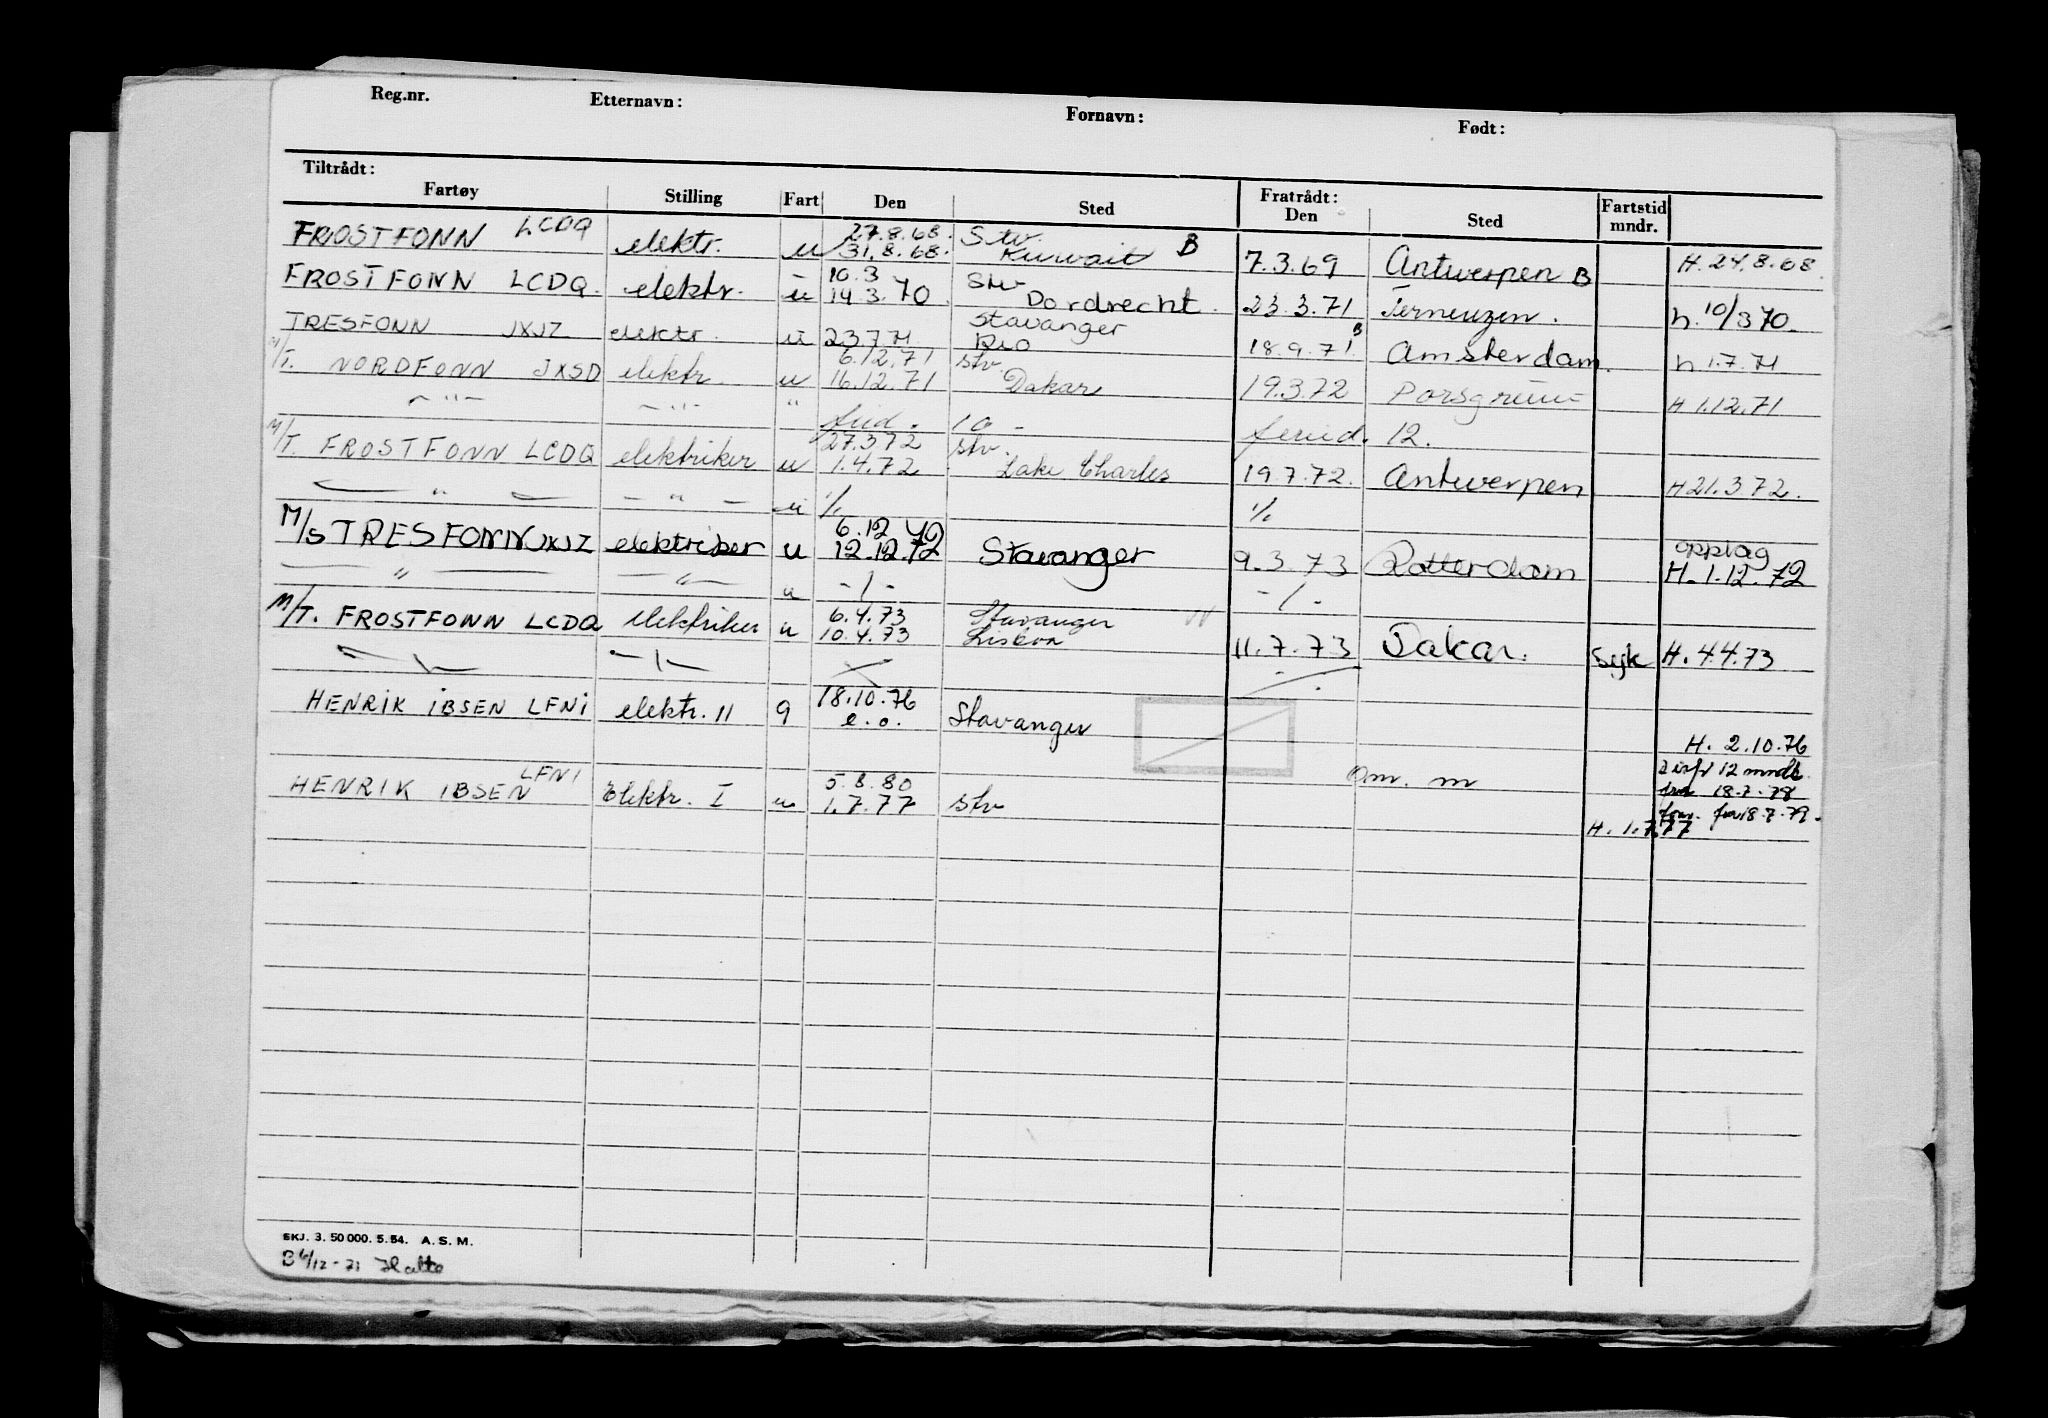 Reg.nr. Etternavn: Fornavn: Født:
Tiltrådt: Fratrådt:
Fartøy Stilling Fart Den Sted Den Sted Fartstid mndr.
FROSTFONN LCDQ elektr. u 27.8.68. 31.8.68. Stv. Kuwait B 7.3.69 Antwerpen B H. 24.8.68.
FROSTFONN LCDQ. elektr. u 10.3 14.3.70 Stv Dordrecht. 23.3.71 Terneuzen. h. 10/3 70.
TRESFONN JXJZ elektr. u 23.7.71 Stavanger Rio 18.9.71 B Amsterdam. h 1.7.71
M/T. NORDFONN JXSD elektr. u 6.12.71 16.12.71 Stv. Dakar 19.3.72 Porsgrunn H 1.12.71
— " — — " — " 10 - feried. 12.
M/T. FROSTFONN LCDQ elektriker u 27.3.72 1.4.72 Stv. Lake Charles 19.7.72. Antwerpen H 21.3.72.
— " — — " — u % %
M/S TRESFONN JXJZ elektriker u 6.12.72 12.12.72 Stavanger 9.3.73 Rotterdam opplag H. 1.12.72
— " — — " — u - / - - / -
M/T. FROSTFONN LCDQ elektriker u 6.4.73 10.4.73 Stavanger Lisbon 11.7.73 Dakar. Syk H. 4.4.73
HENRIK IBSEN LFNI elektr. II 9 18.10.76 e.o. Stavanger
H. 2.10.76
HENRIK IBSEN LFNI Elektr. I u 5.8.80 1.7.77 Stv Om. m 12 mndr. fra 18.7.78
fra 18.7.79.
H. 1.7.77
SKJ. 3. 50 000. 5. 54. A. S. M.
B 6/12-71 Halte